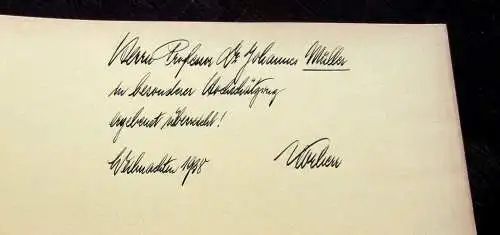 Herrn Professor Dr. Johannes Müller
in besonderer Hochschätzung
ergebenst überreicht!
Weihnachten 1938